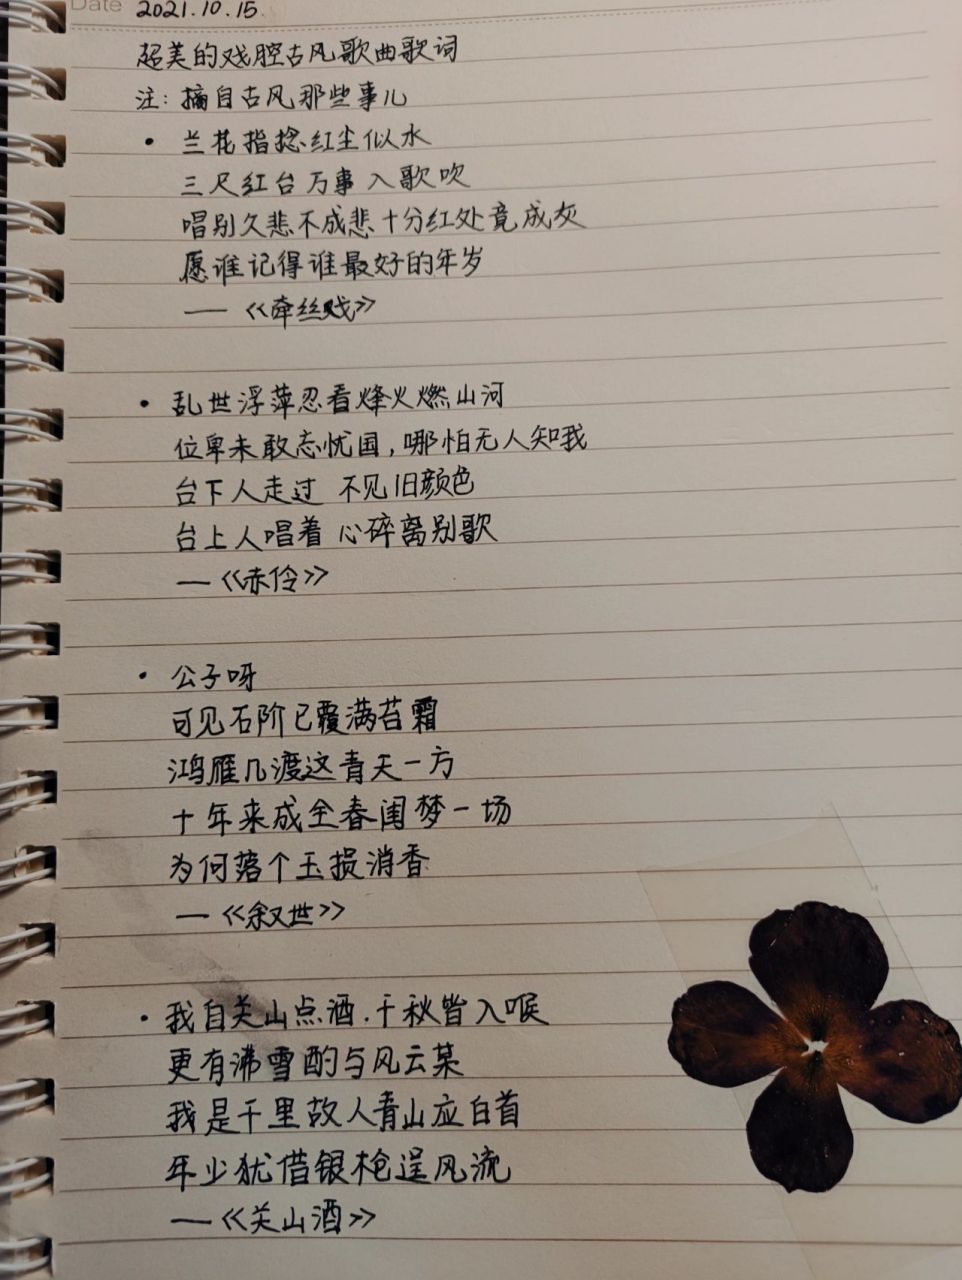 Date 2021.10.15.
超美的戏腔古风歌曲歌词
注：摘自古风那些事儿
• 兰花指捻红尘似水
三尺红台万事入歌吹
唱别久悲不成悲十分红处竟成灰
愿谁记得谁最好的年岁
——《牵丝戏》
• 乱世浮萍忍看烽火燃山河
位卑未敢忘忧国，哪怕无人知我
台下人走过 不见旧颜色
台上人唱着 心碎离别歌
—《赤伶》
• 公子呀
可见石阶已覆满苔霜
鸿雁几渡这青天一方
十年来成全春闺梦一场
为何落个玉损消香
—《叙世》
• 我自关山点酒.千秋皆入喉
更有沸雪酌与风云某
我是千里故人青山应白首
年少犹借银枪逞风流
—《关山酒》